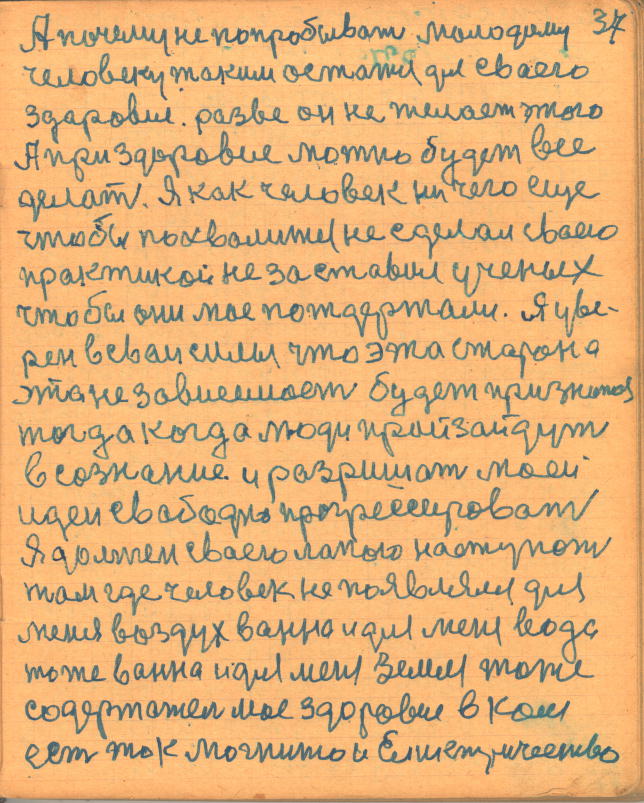 37
А почему не попробыват молодому
человеку таким остатся для сваего
здаровие. разве он не желает этого
А при здоровие можно будет все
делат. Я как человек ни чего еще
чтобы похвалится не сделал сваею
практикой не заставил ученых
чтобы они мое пождержали. Я уве-
рен в сваи силы что эта старона
эта независимост будет признатой
тогда когда люди прайзайдут
в сознание и разришат моей
идеи свабодно прогрессироват
Я должен сваею лапою наступат
там где человек не появлялся для
меня воздух ванна и для меня вода
тоже ванна и для меня Земля тоже
содержател мое здоровие в кой
ест ток магнито и Елистричество